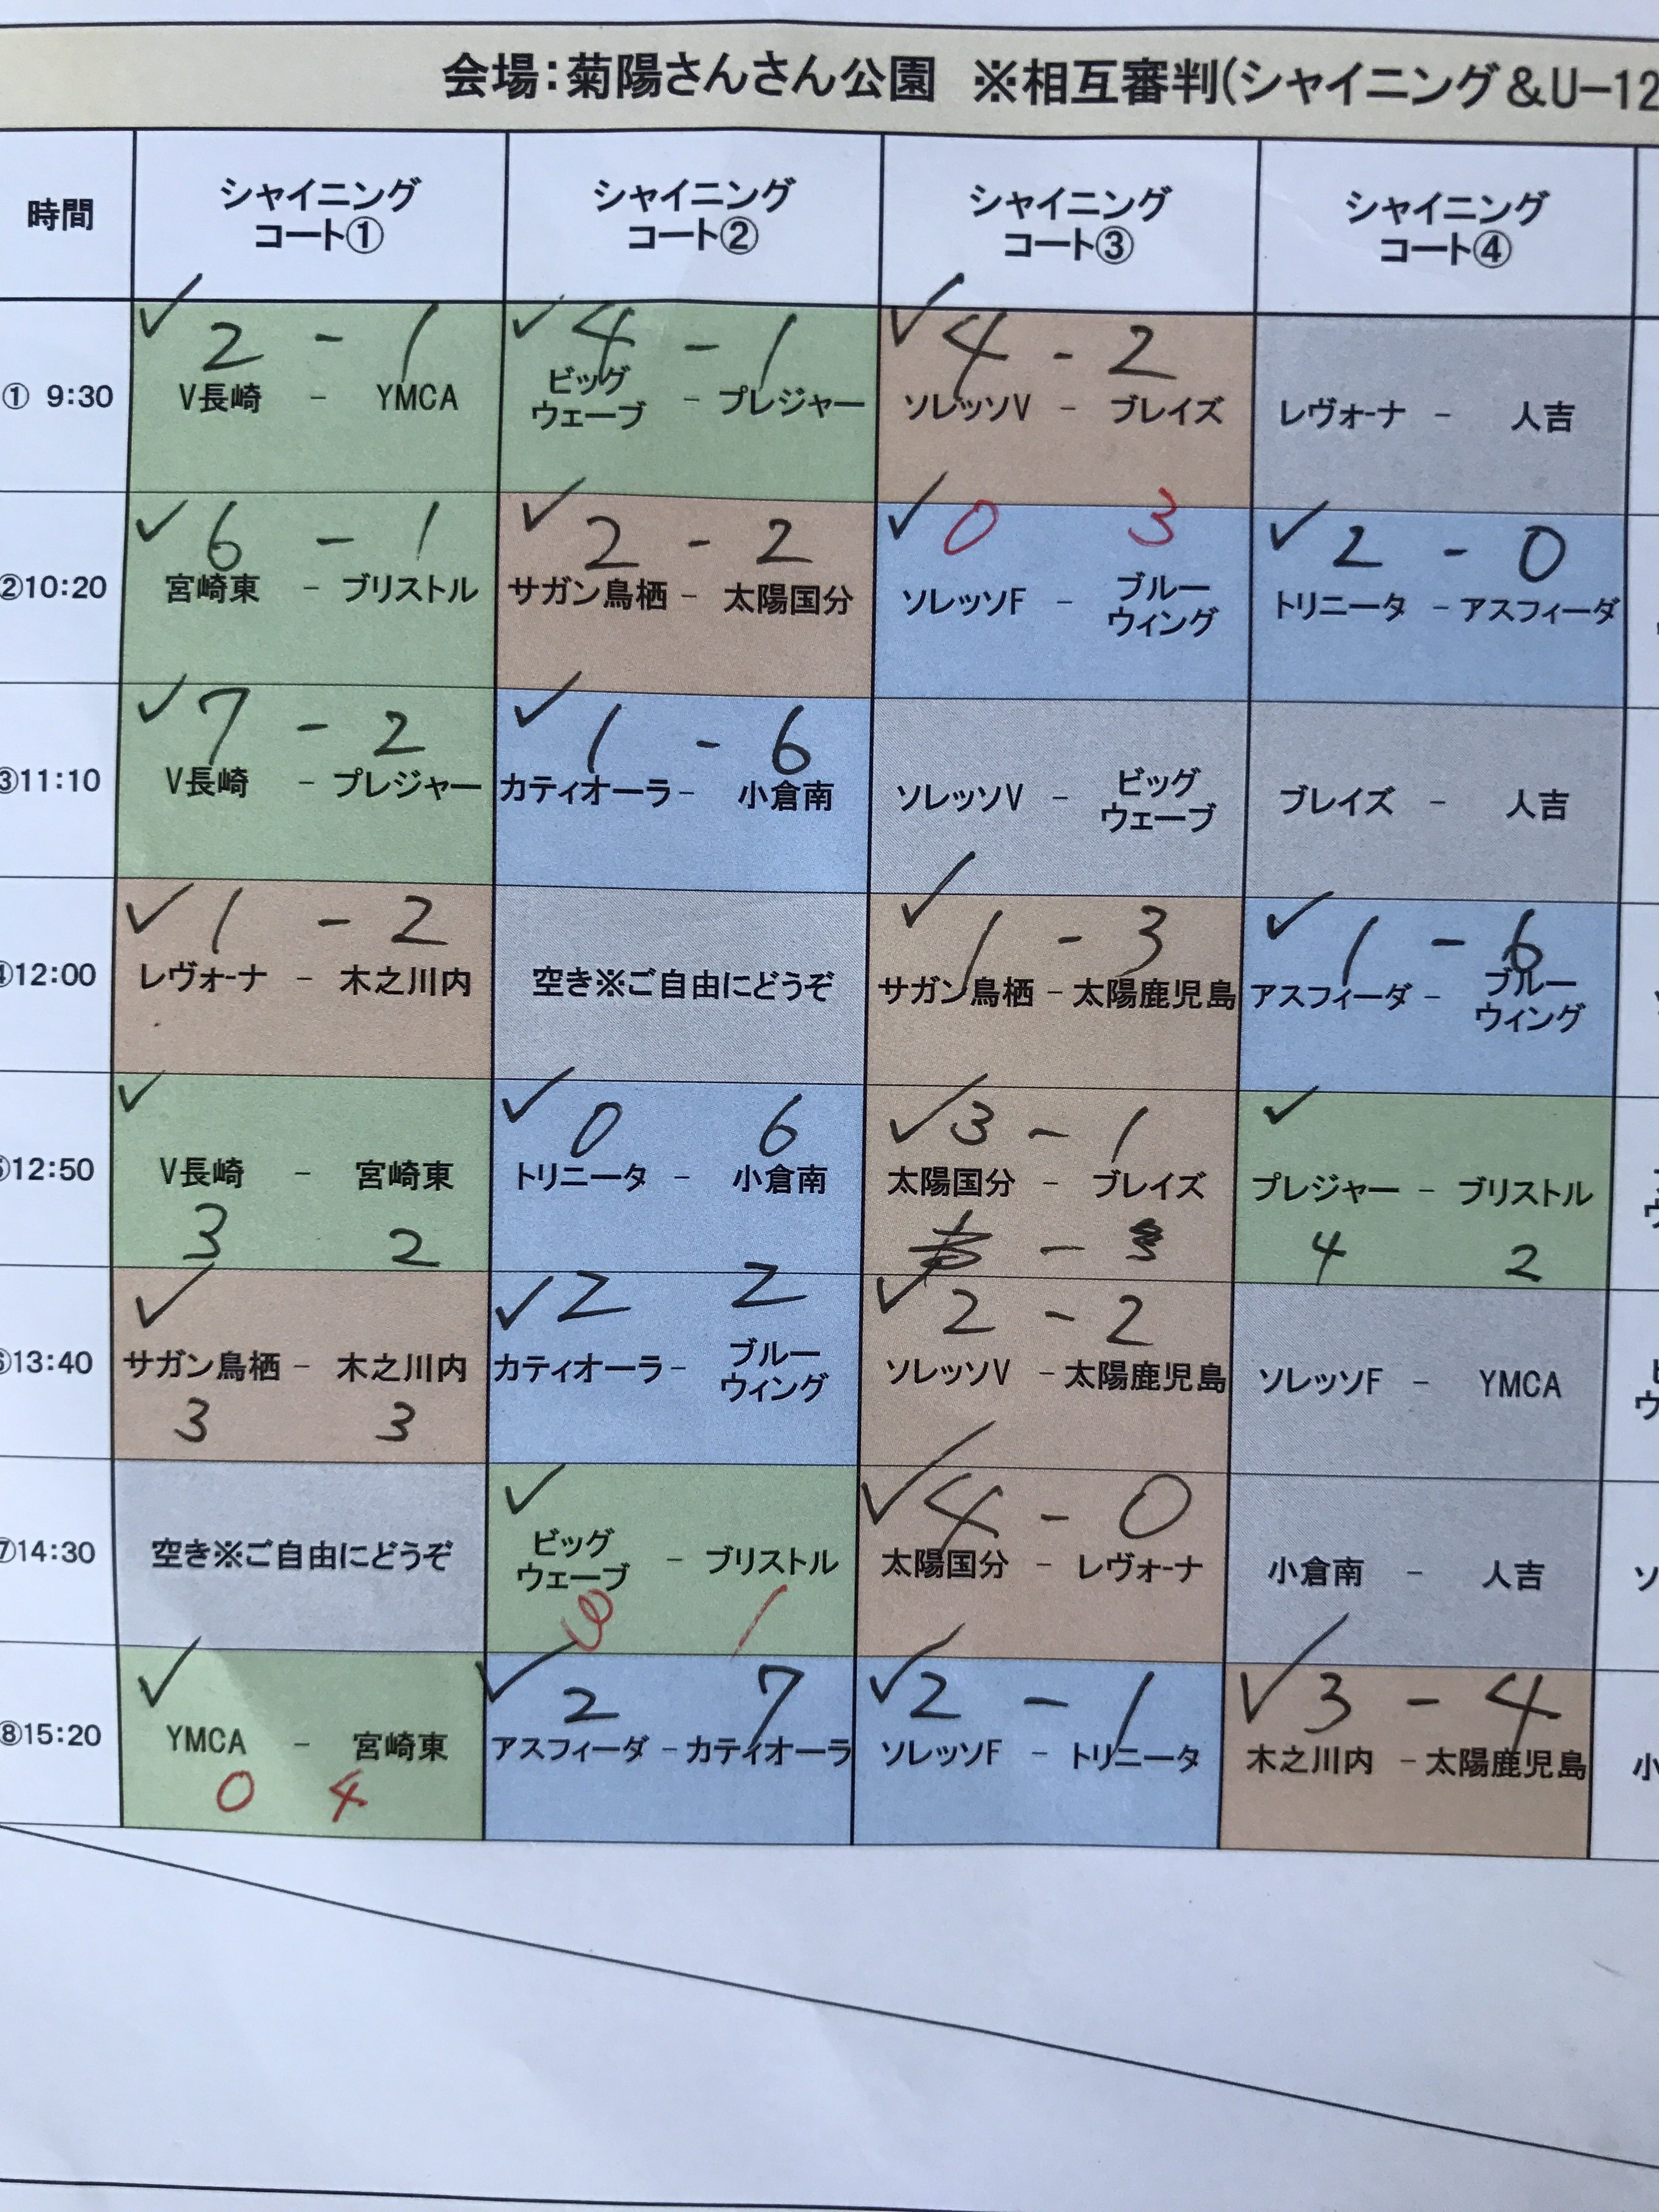 会場：菊陽さんさん公園　※相互審判(シャイニング＆U-12
時間 シャイニング コート① シャイニング コート② シャイニング コート③ シャイニング コート④
① 9:30
✓ 2 - 1
V長崎 - YMCA
✓ 4 - 1
ビッグ
ウェーブ - プレジャー
✓ 4 - 2
ソレッソV - ブレイズ
レヴォーナ - 人吉
②10:20
✓ 6 - 1
宮崎東 - ブリストル
✓ 2 - 2
サガン鳥栖 - 太陽国分
✓ 0 3
ソレッソF - ブルー
ウィング
✓ 2 - 0
トリニータ - アスフィーダ
③11:10
✓ 7 - 2
V長崎 - プレジャー
✓ 1 - 6
カティオーラ - 小倉南
ソレッソV - ビッグ
ウェーブ
ブレイズ - 人吉
④12:00
✓ 1 - 2
レヴォーナ - 木之川内
空き※ご自由にどうぞ
✓ 1 - 3
サガン鳥栖 - 太陽鹿児島
✓ 1 - 6
アスフィーダ - ブルー
ウィング
⑤12:50
✓
V長崎 - 宮崎東
3 2
✓ 0 6
トリニータ - 小倉南
✓ 3 - 1
太陽国分 - ブレイズ
✓
プレジャー - ブリストル
4 2
⑥13:40
✓
サガン鳥栖 - 木之川内
3 3
✓ 2 2
カティオーラ - ブルー
ウィング
✓ 2 - 2
ソレッソV - 太陽鹿児島
ソレッソF - YMCA
⑦14:30
空き※ご自由にどうぞ
✓
ビッグ
ウェーブ - ブリストル
1
✓ 4 - 0
太陽国分 - レヴォーナ
小倉南 - 人吉
⑧15:20
✓
YMCA - 宮崎東
0 4
✓ 2 7
アスフィーダ - カティオーラ
✓ 2 - 1
ソレッソF - トリニータ
✓ 3 - 4
木之川内 - 太陽鹿児島